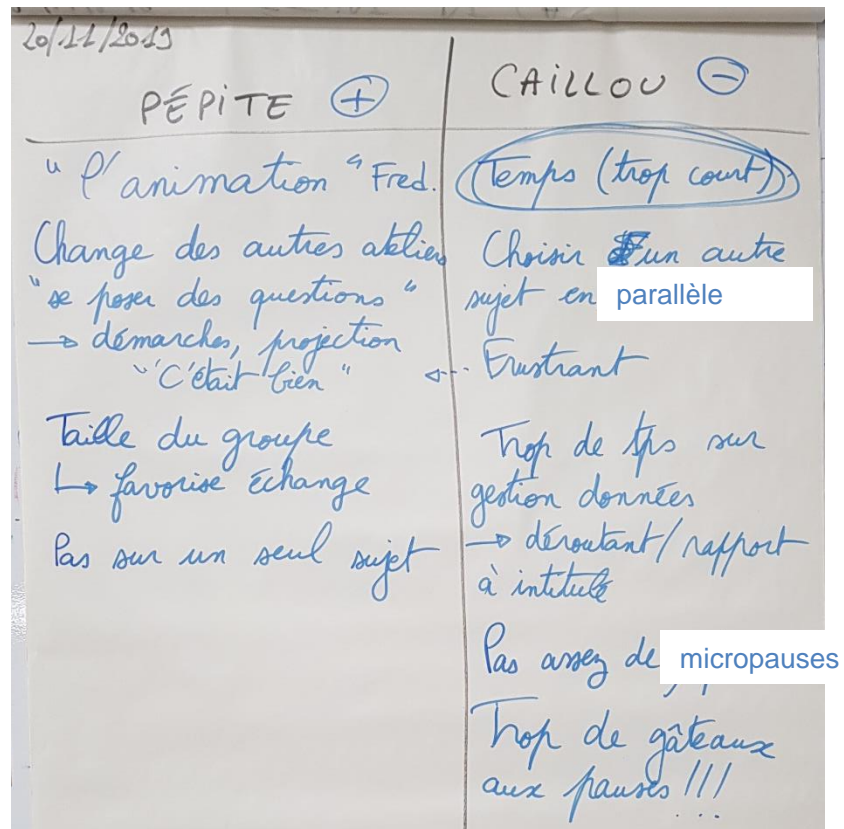 20/11/2019
PÉPITE +
"l'animation" Fred.
Change des autres ateliers
"se poser des questions"
→ démarches, projection
"C'était bien"
Taille du groupe
↳ favorise échange
Pas sur un seul sujet
CAILLOU -
Temps (trop court)
Choisir un autre
sujet en parallèle
Frustrant
Trop de tps sur
gestion données
→ déroutant/rapport
à intitulé
Pas assez de micropauses
Trop de gâteaux
aux pauses !!!